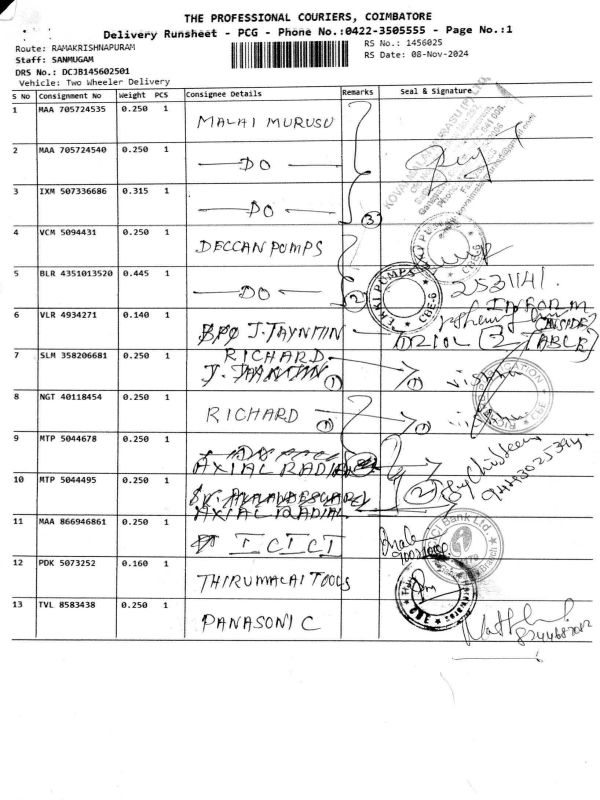 THE PROFESSIONAL COURIERS, COIMBATORE
Delivery Runsheet - PCG - Phone No.:0422-3505555 - Page No.:1
Route: RAMAKRISHNAPURAM
RS No.: 1456025
Staff: SANMUGAM
RS Date: 08-Nov-2024
DRS No.: DCJB145602501
Vehicle: Two Wheeler Delivery
S No Consignment No Weight PCS Consignee Details Remarks Seal & Signature
1 MAA 705724535 0.250 1 MALAI MURUSU
2 MAA 705724540 0.250 1 DO
3 IXM 507336686 0.315 1 DO 3
4 VCM 5094431 0.250 1 DECCAN PUMPS
5 BLR 4351013520 0.445 1 DO 2 2531141
6 VLR 4934271 0.140 1 J. JAYNTHIN INFORM
7 SLM 358206681 0.250 1 RICHARD 1 1
8 NGT 40118454 0.250 1 RICHARD 1 1
9 MTP 5044678 0.250 1 AXIAL RADIAL
10 MTP 5044495 0.250 1 AXIAL RADIAL 2
11 MAA 866946861 0.250 1 ICICI
12 PDK 5073252 0.160 1 THIRUMALAI TOOLS
13 TVL 8583438 0.250 1 PANASONIC